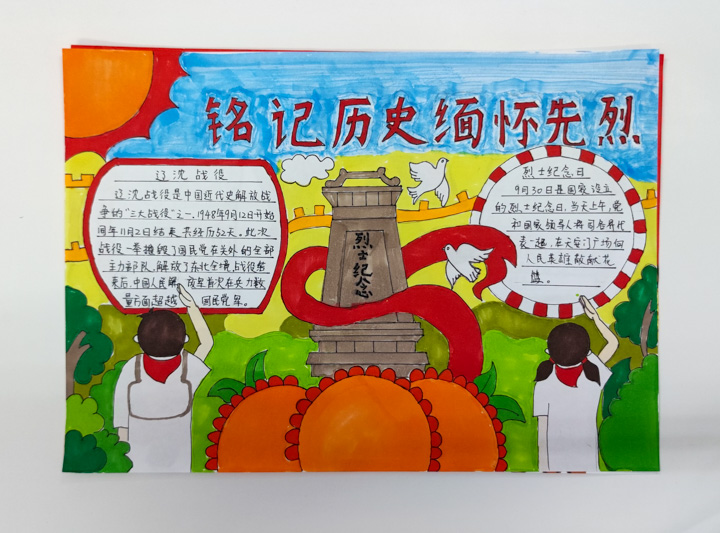 铭记历史缅怀先烈
辽沈战役
辽沈战役是中国近代史解放战
争的"三大战役"之一.1948年9月12日开始
同年11月2日结束共经历52天。此次
战役一举摧毁了国民党在关外的全部
主力部队,解放了东北全境,战役结
束后,中国人民解 放军首次在兵力数
量方面超越 国民党军。
烈士纪念
烈士纪念日
9月30日是国家设立
的烈士纪念日,当天上午,党
和国家领导人将同各界代
表一起,在天安门广场向
人民英雄敬献花
篮。